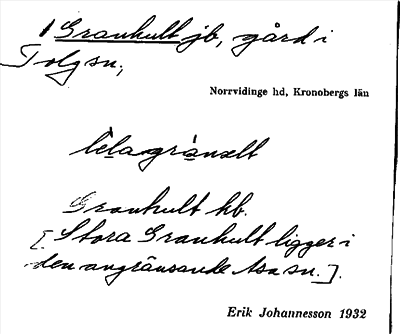 1 Granhult jb, gård i
Tolg sn;
Norrvidinge hd, Kronobergs län
Granhult hb.
[Stora Granhult ligger i
den angränsande Asa sn.].
Erik Johannesson 1932